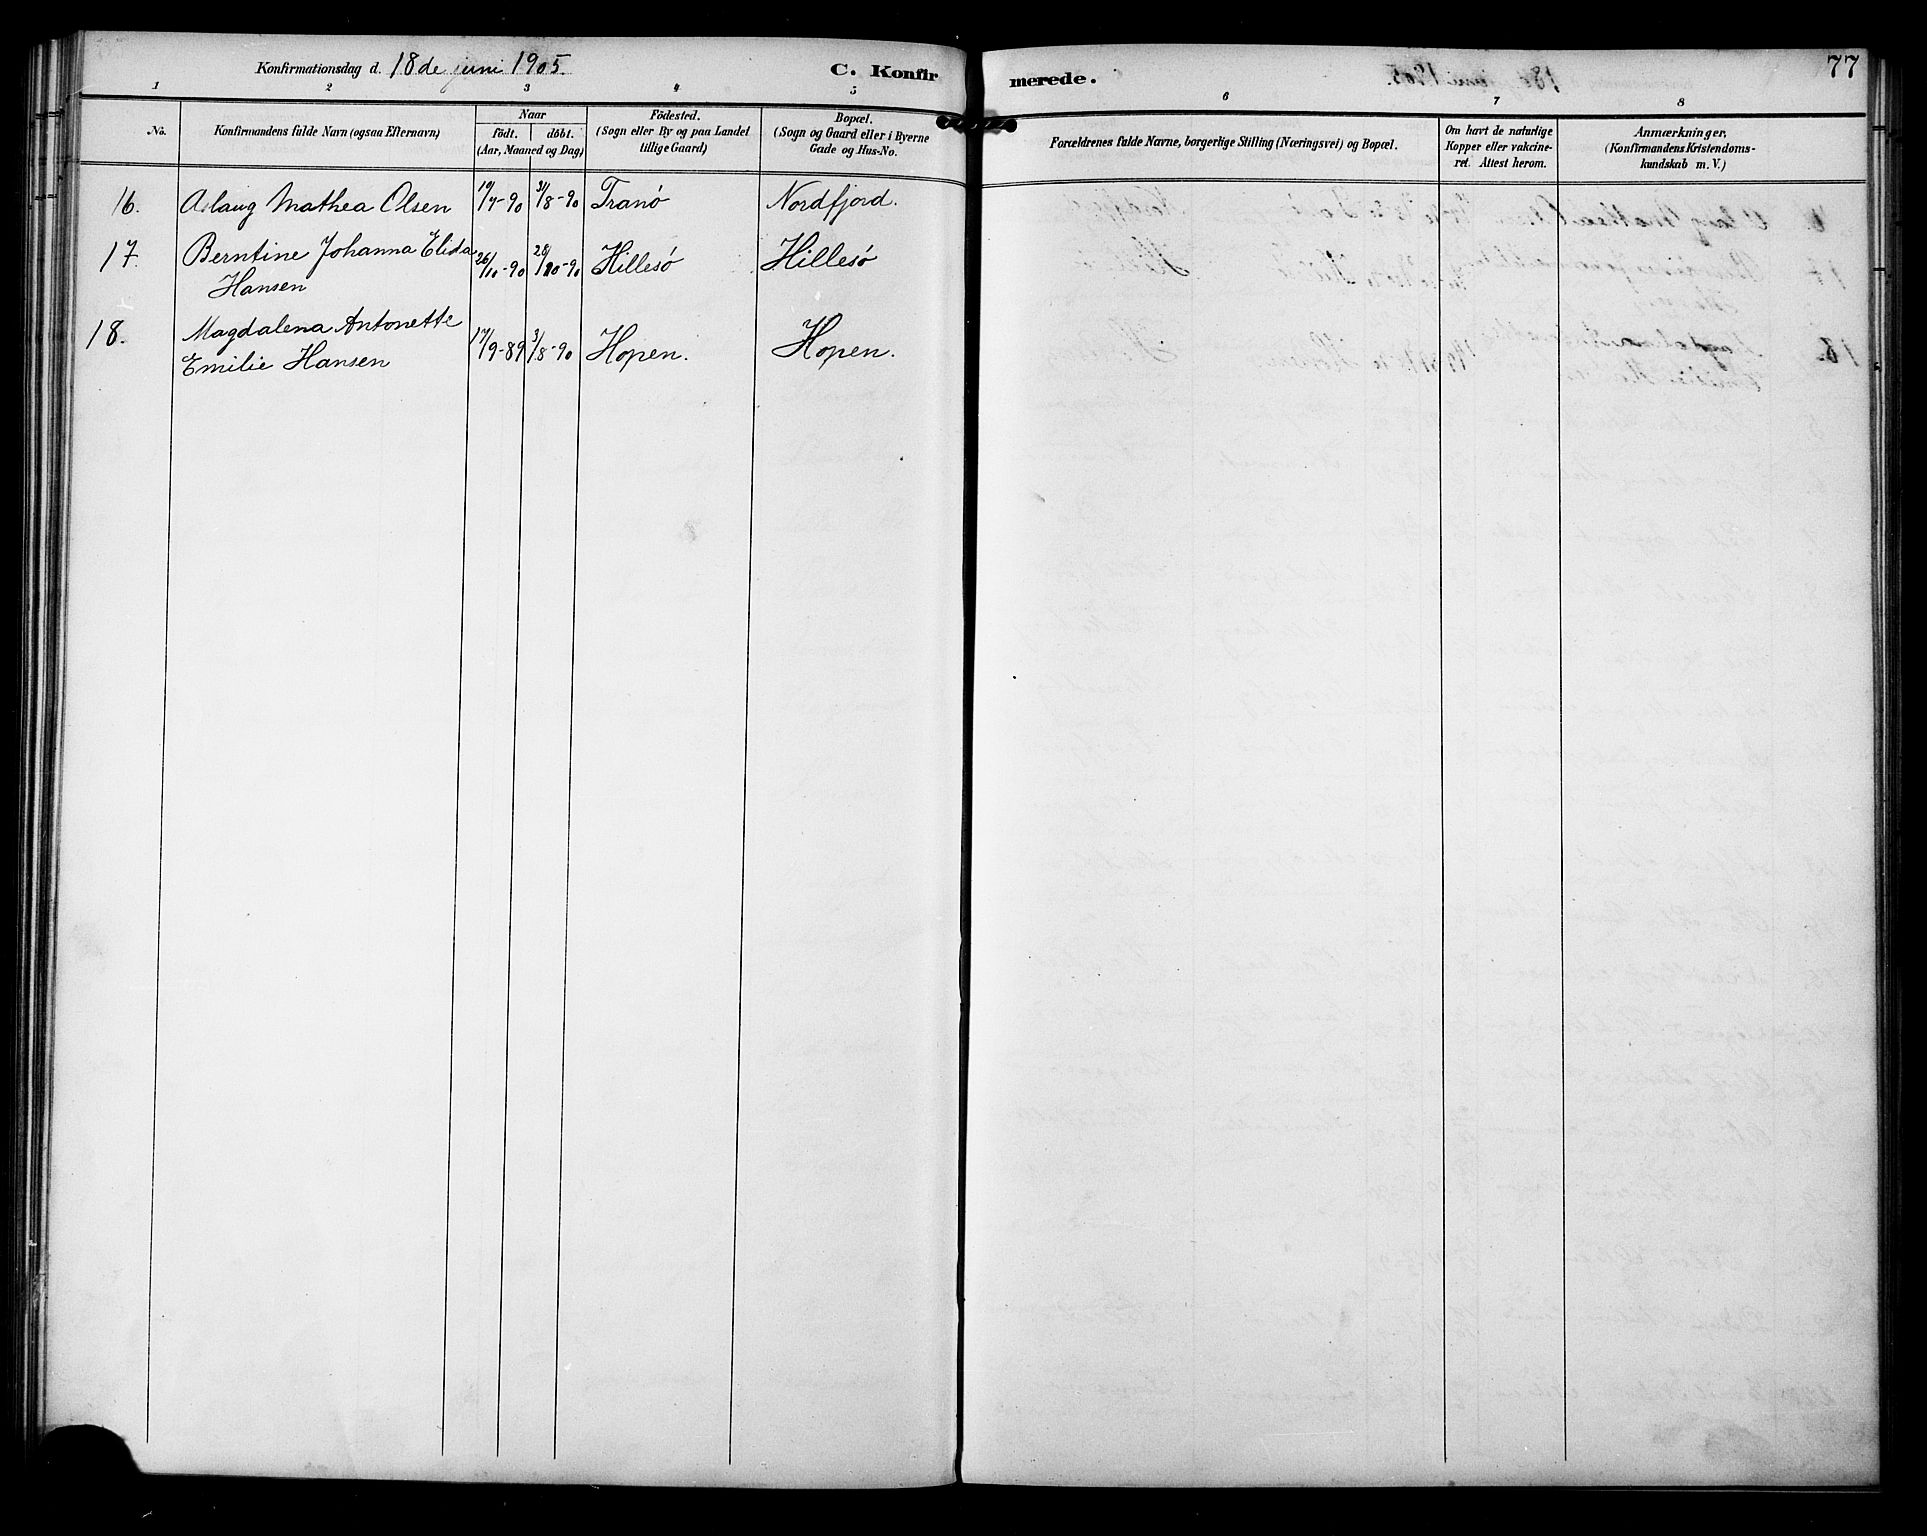 Konfirmationsdag d. 18de juni 1905.
C. Konfirmerede.
77
1 2 3 4 5 6 7 8
No.
Konfirmandens fulde Navn (ogsaa Efternavn)
Naar
födt. döbt.
(Aar, Maaned og Dag)
Födested.
(Sogn eller By og paa Landet
tillige Gaard)
Bopæl.
(Sogn og Gaard eller i Byerne
Gade og Hus-No.
Forældrenes fulde Navne, borgerlige Stilling (Næringsvei) og Bopæl.
Om havt de naturlige
Kopper eller vakcine-
ret. Attest herom.
Anmærkninger.
(Konfirmandens Kristendoms-
kundskab m. V.)
16. Aslaug Mathea Olsen 19/7-90 31/8-90 Tranö Nordfjord.
17. Berntine Johanna Elida 26/10-90 28/10-90 Hillesö Hillesö
Hansen
18. Magdalena Antonette 17/9-89 3/8-90 Hopen. Hopen.
Emilie Hansen